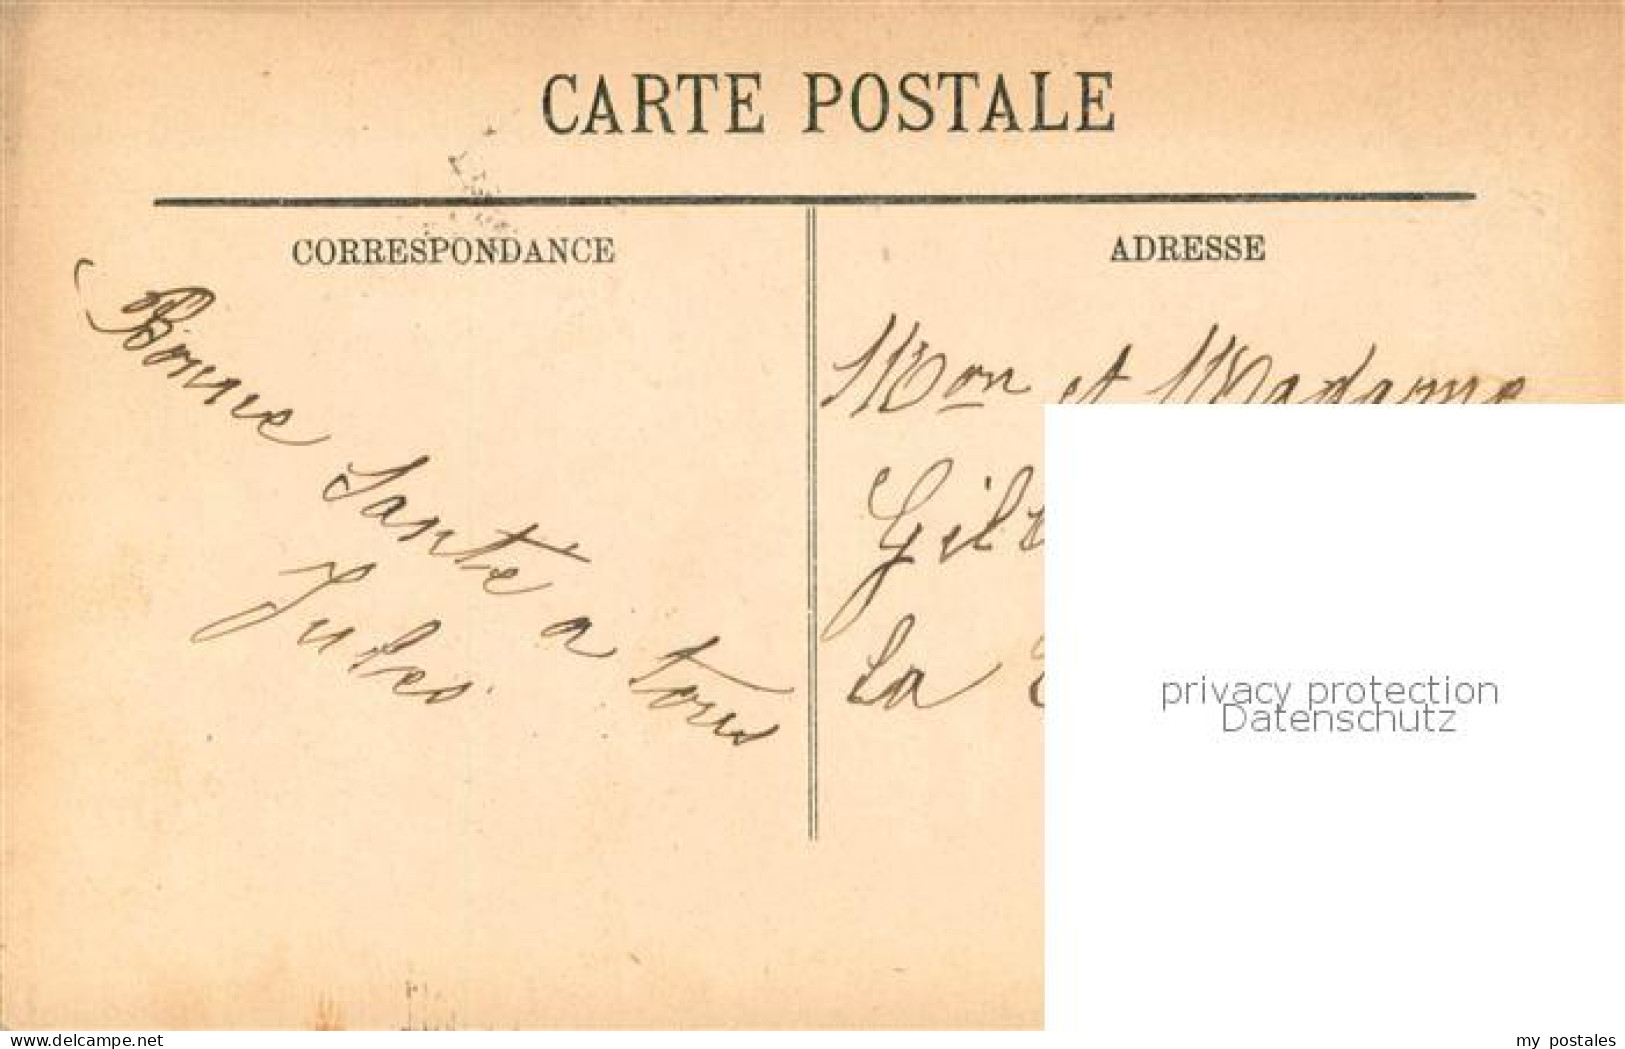 CARTE POSTALE
CORRESPONDANCE
Bonne Santé a tous
Jules
ADRESSE
Mon et Madame
Gil
La
privacy protection
Datenschutz
www.delcampe.net
my_postales